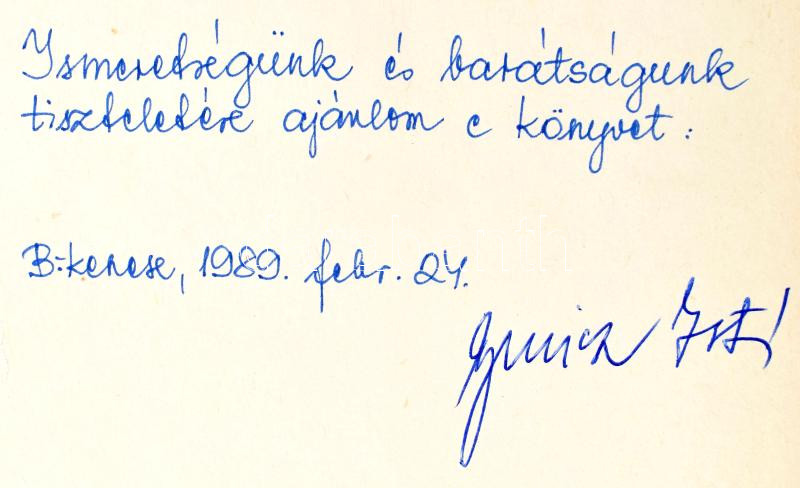 Ismeretségünk és barátságunk
tiszteletére ajánlom e könyvet:
B:kenese, 1989. febr. 24.